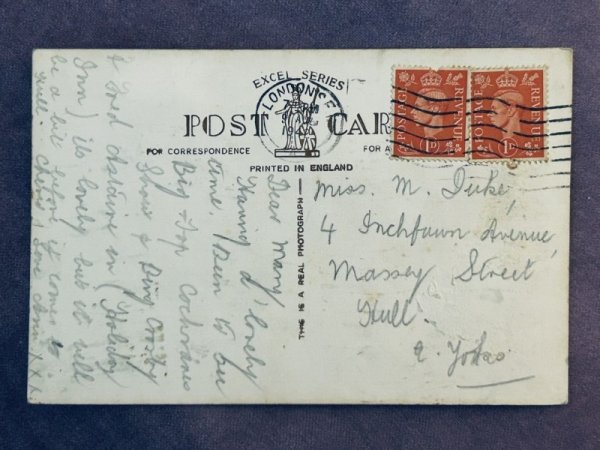 EXCEL SERIES
POST CARD
LONDON S.E.
FOR CORRESPONDENCE
FOR A
PRINTED IN ENGLAND
THIS IS A REAL PHOTOGRAPH
POSTAGE REVENUE
1D
POSTAGE REVENUE
1D
Dear Mary
Having a lovely
time / Been to see
Big Top Cochranes
Show & Bing Crosby
& Fred Astaire in (Holiday
Inn) its lovely but it will
be a bit before it comes to
Hull. Cheerio, Love Ann X X X
Miss. M. Duke,
4 Inchfawn Avenue,
Massey Street
Hull.
E. Yorks